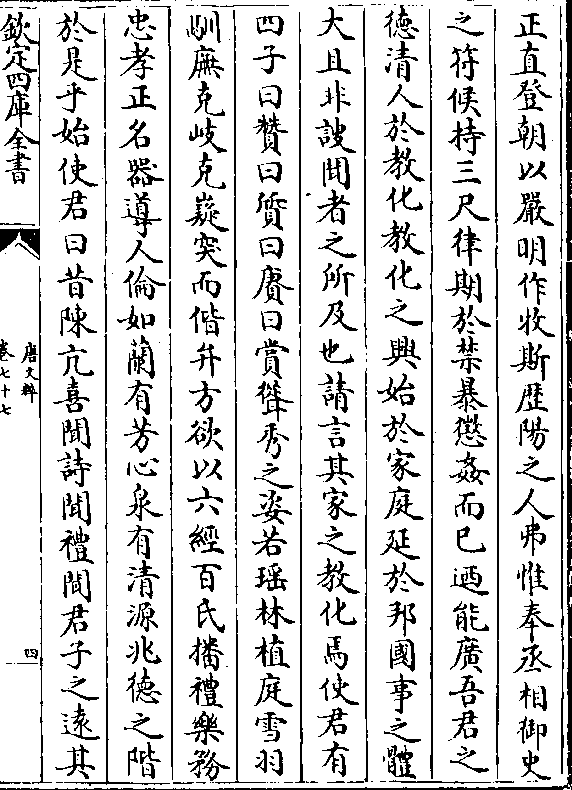 正直登朝以嚴明作牧斯歴陽之人弗惟奉丞相御史
之符候持三尺律期於禁暴懲姦而已迺能廣吾君之
德清人於教化教化之興始於家庭延於邦國事之體
大且非謏聞者之所及也請言其家之教化焉使君有
四子曰贊曰質曰賡曰賞聳秀之姿若瑶林植庭雪羽
馴廡克岐克嶷突而偕弁方欲以六經百氏播禮樂務
忠孝正名器導人倫如蘭有芳心泉有清源兆德之階
於是乎始使君曰昔陳亢喜聞詩聞禮聞君子之遠其
欽定四庫全書
唐文粹
卷七十七
四